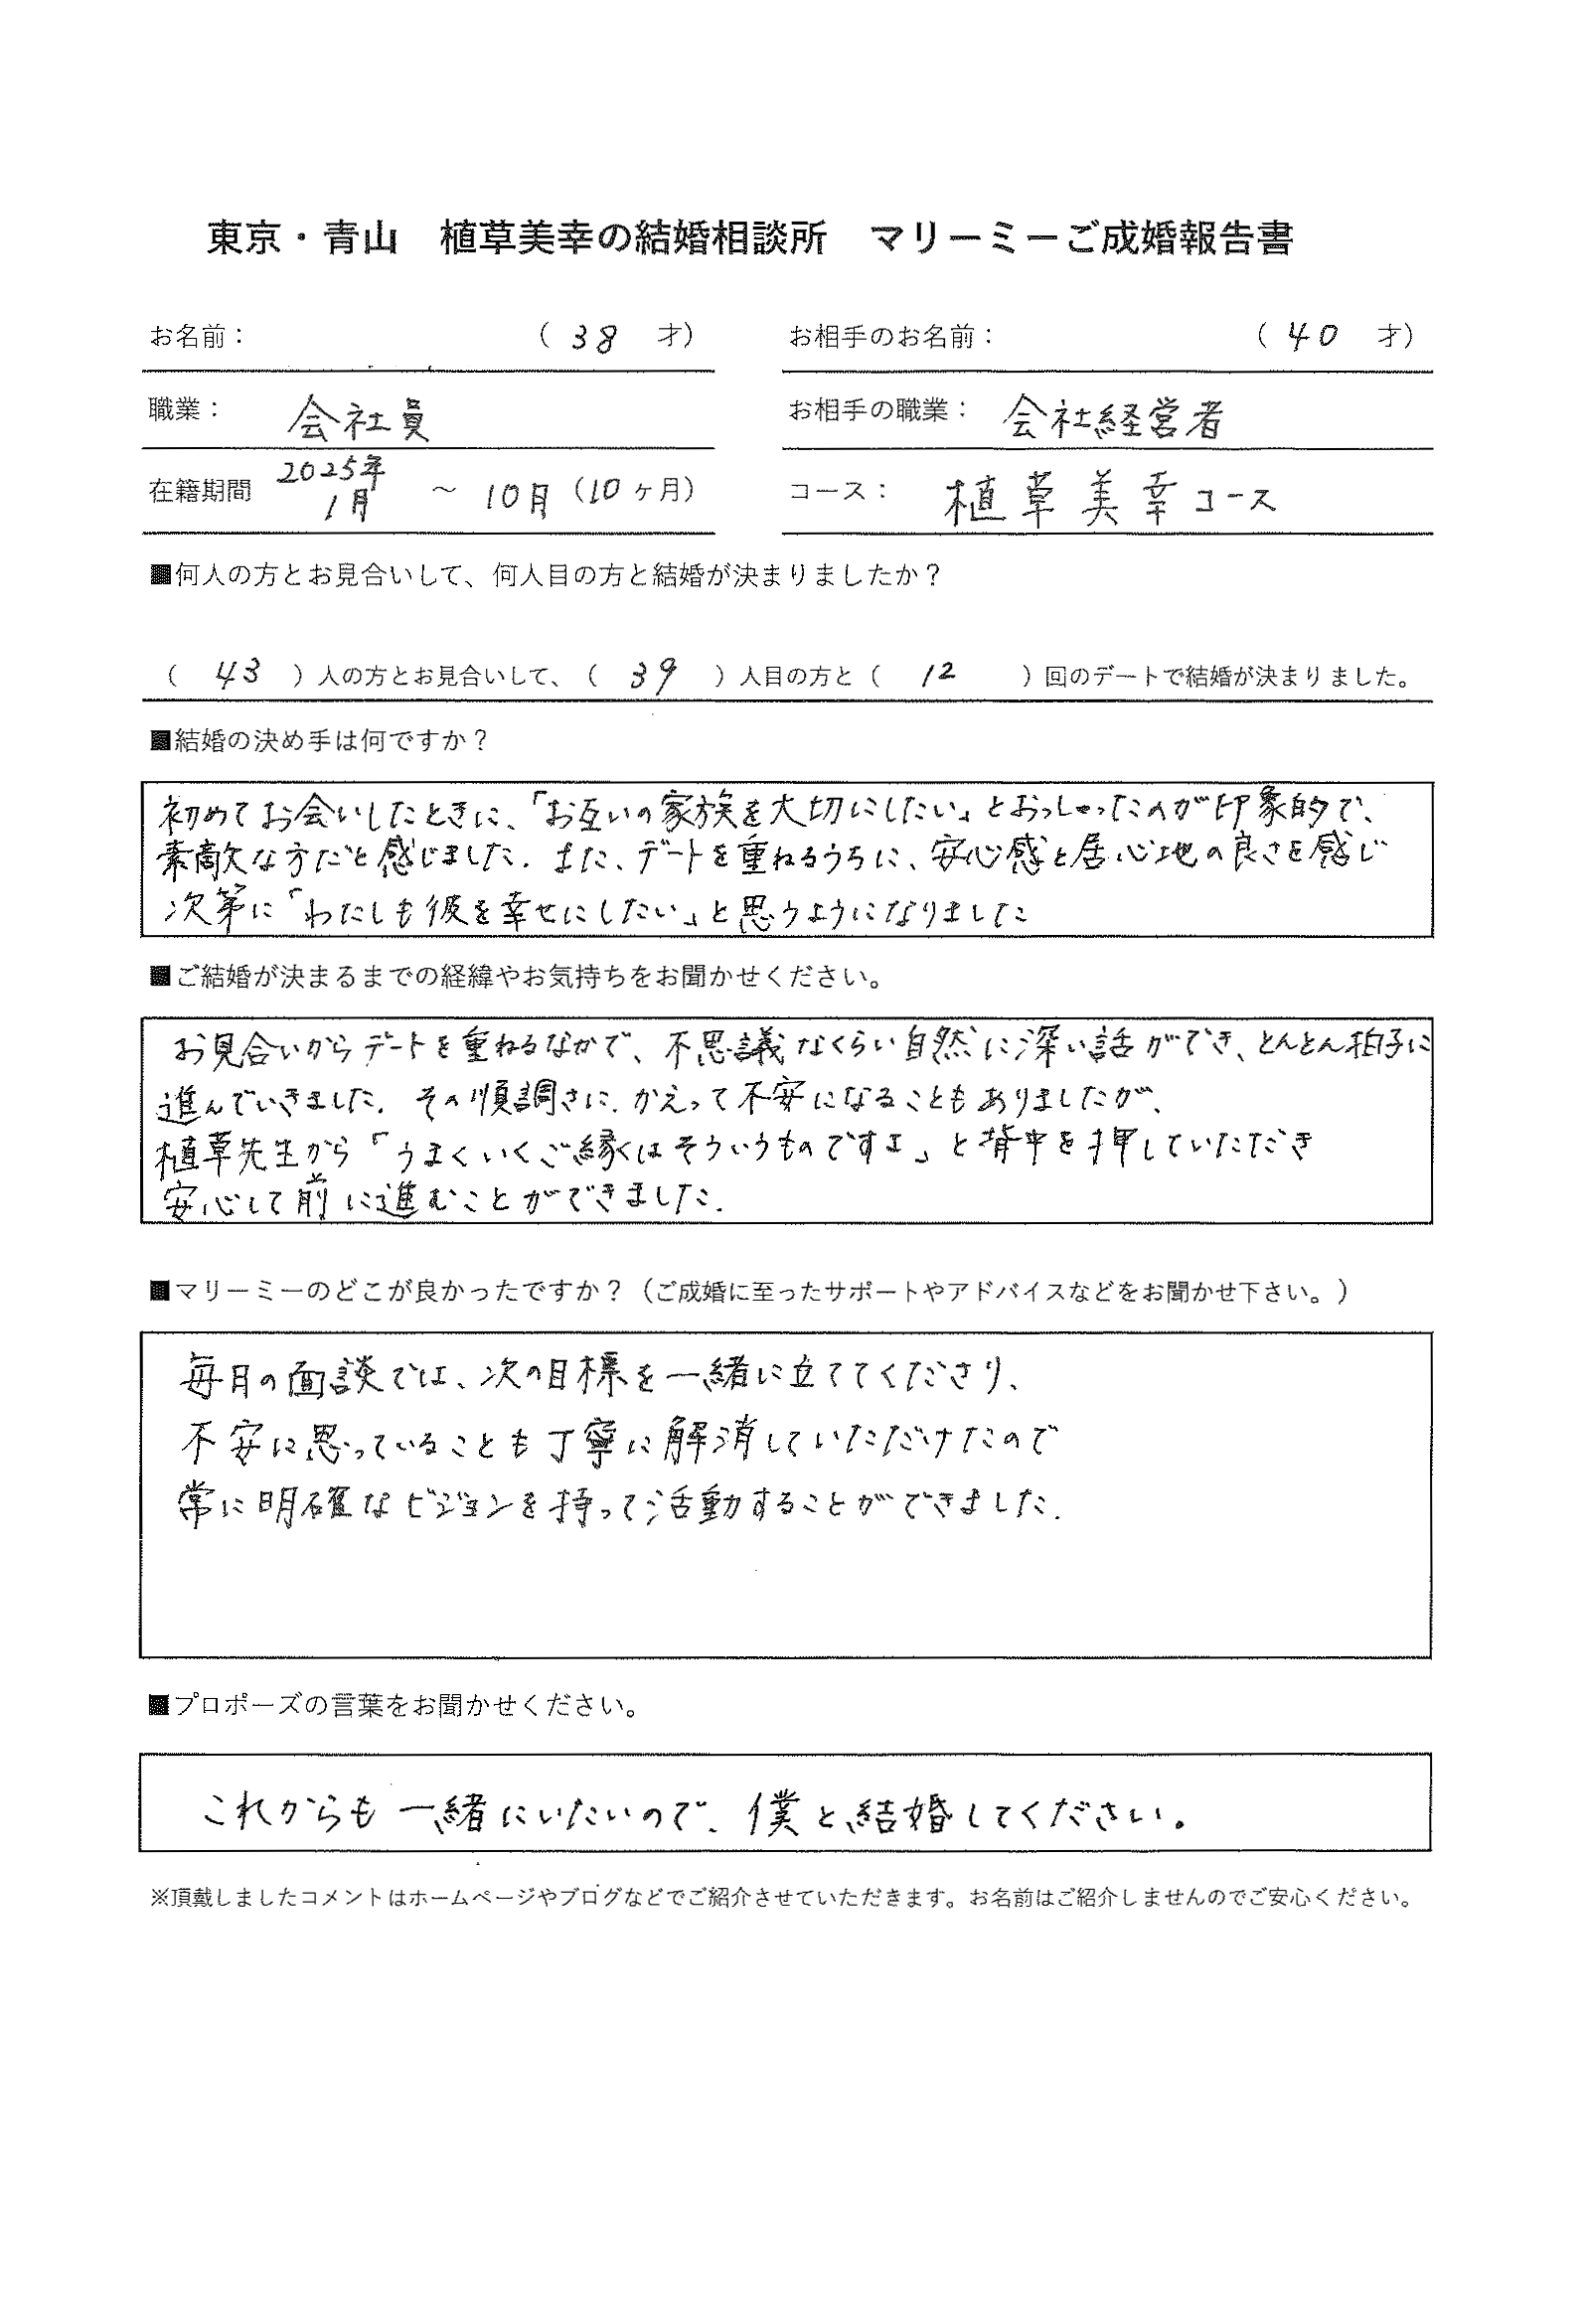 東京・青山　植草美幸の結婚相談所　マリーミーご成婚報告書
お名前：　（ 38 才）　お相手のお名前：　（ 40 才）
職業：　会社員　お相手の職業：　会社経営者
在籍期間　2025年1月　～　10月（10ヶ月）　コース：　植草美幸コース
■何人の方とお見合いして、何人目の方と結婚が決まりましたか？
（ 43 ）人の方とお見合いして、（ 39 ）人目の方と（ 12 ）回のデートで結婚が決まりました。
■結婚の決め手は何ですか？
初めてお会いしたときに、「お互いの家族を大切にしたい」とおっしゃったのが印象的で、
素敵な方だと感じました. また、デートを重ねるうちに、安心感と居心地の良さを感じ
次第に「わたしも彼を幸せにしたい」と思うようになりました
■ご結婚が決まるまでの経緯やお気持ちをお聞かせください。
お見合いからデートを重ねるなかで、不思議なくらい自然に深い話ができ、とんとん拍子に
進んでいきました. その順調さに、かえって不安になることもありましたが、
植草先生から「うまくいくご縁はそういうものですよ」と背中を押していただき
安心して前に進むことができました.
■マリーミーのどこが良かったですか？（ご成婚に至ったサポートやアドバイスなどをお聞かせ下さい。）
毎月の面談では、次の目標を一緒に立ててくださり、
不安に思っていることも丁寧に解消していただけたので
常に明確なビジョンを持って活動することができました.
■プロポーズの言葉をお聞かせください。
これからも一緒にいたいので、僕と結婚してください。
※頂戴しましたコメントはホームページやブログなどでご紹介させていただきます。お名前はご紹介しませんのでご安心ください。